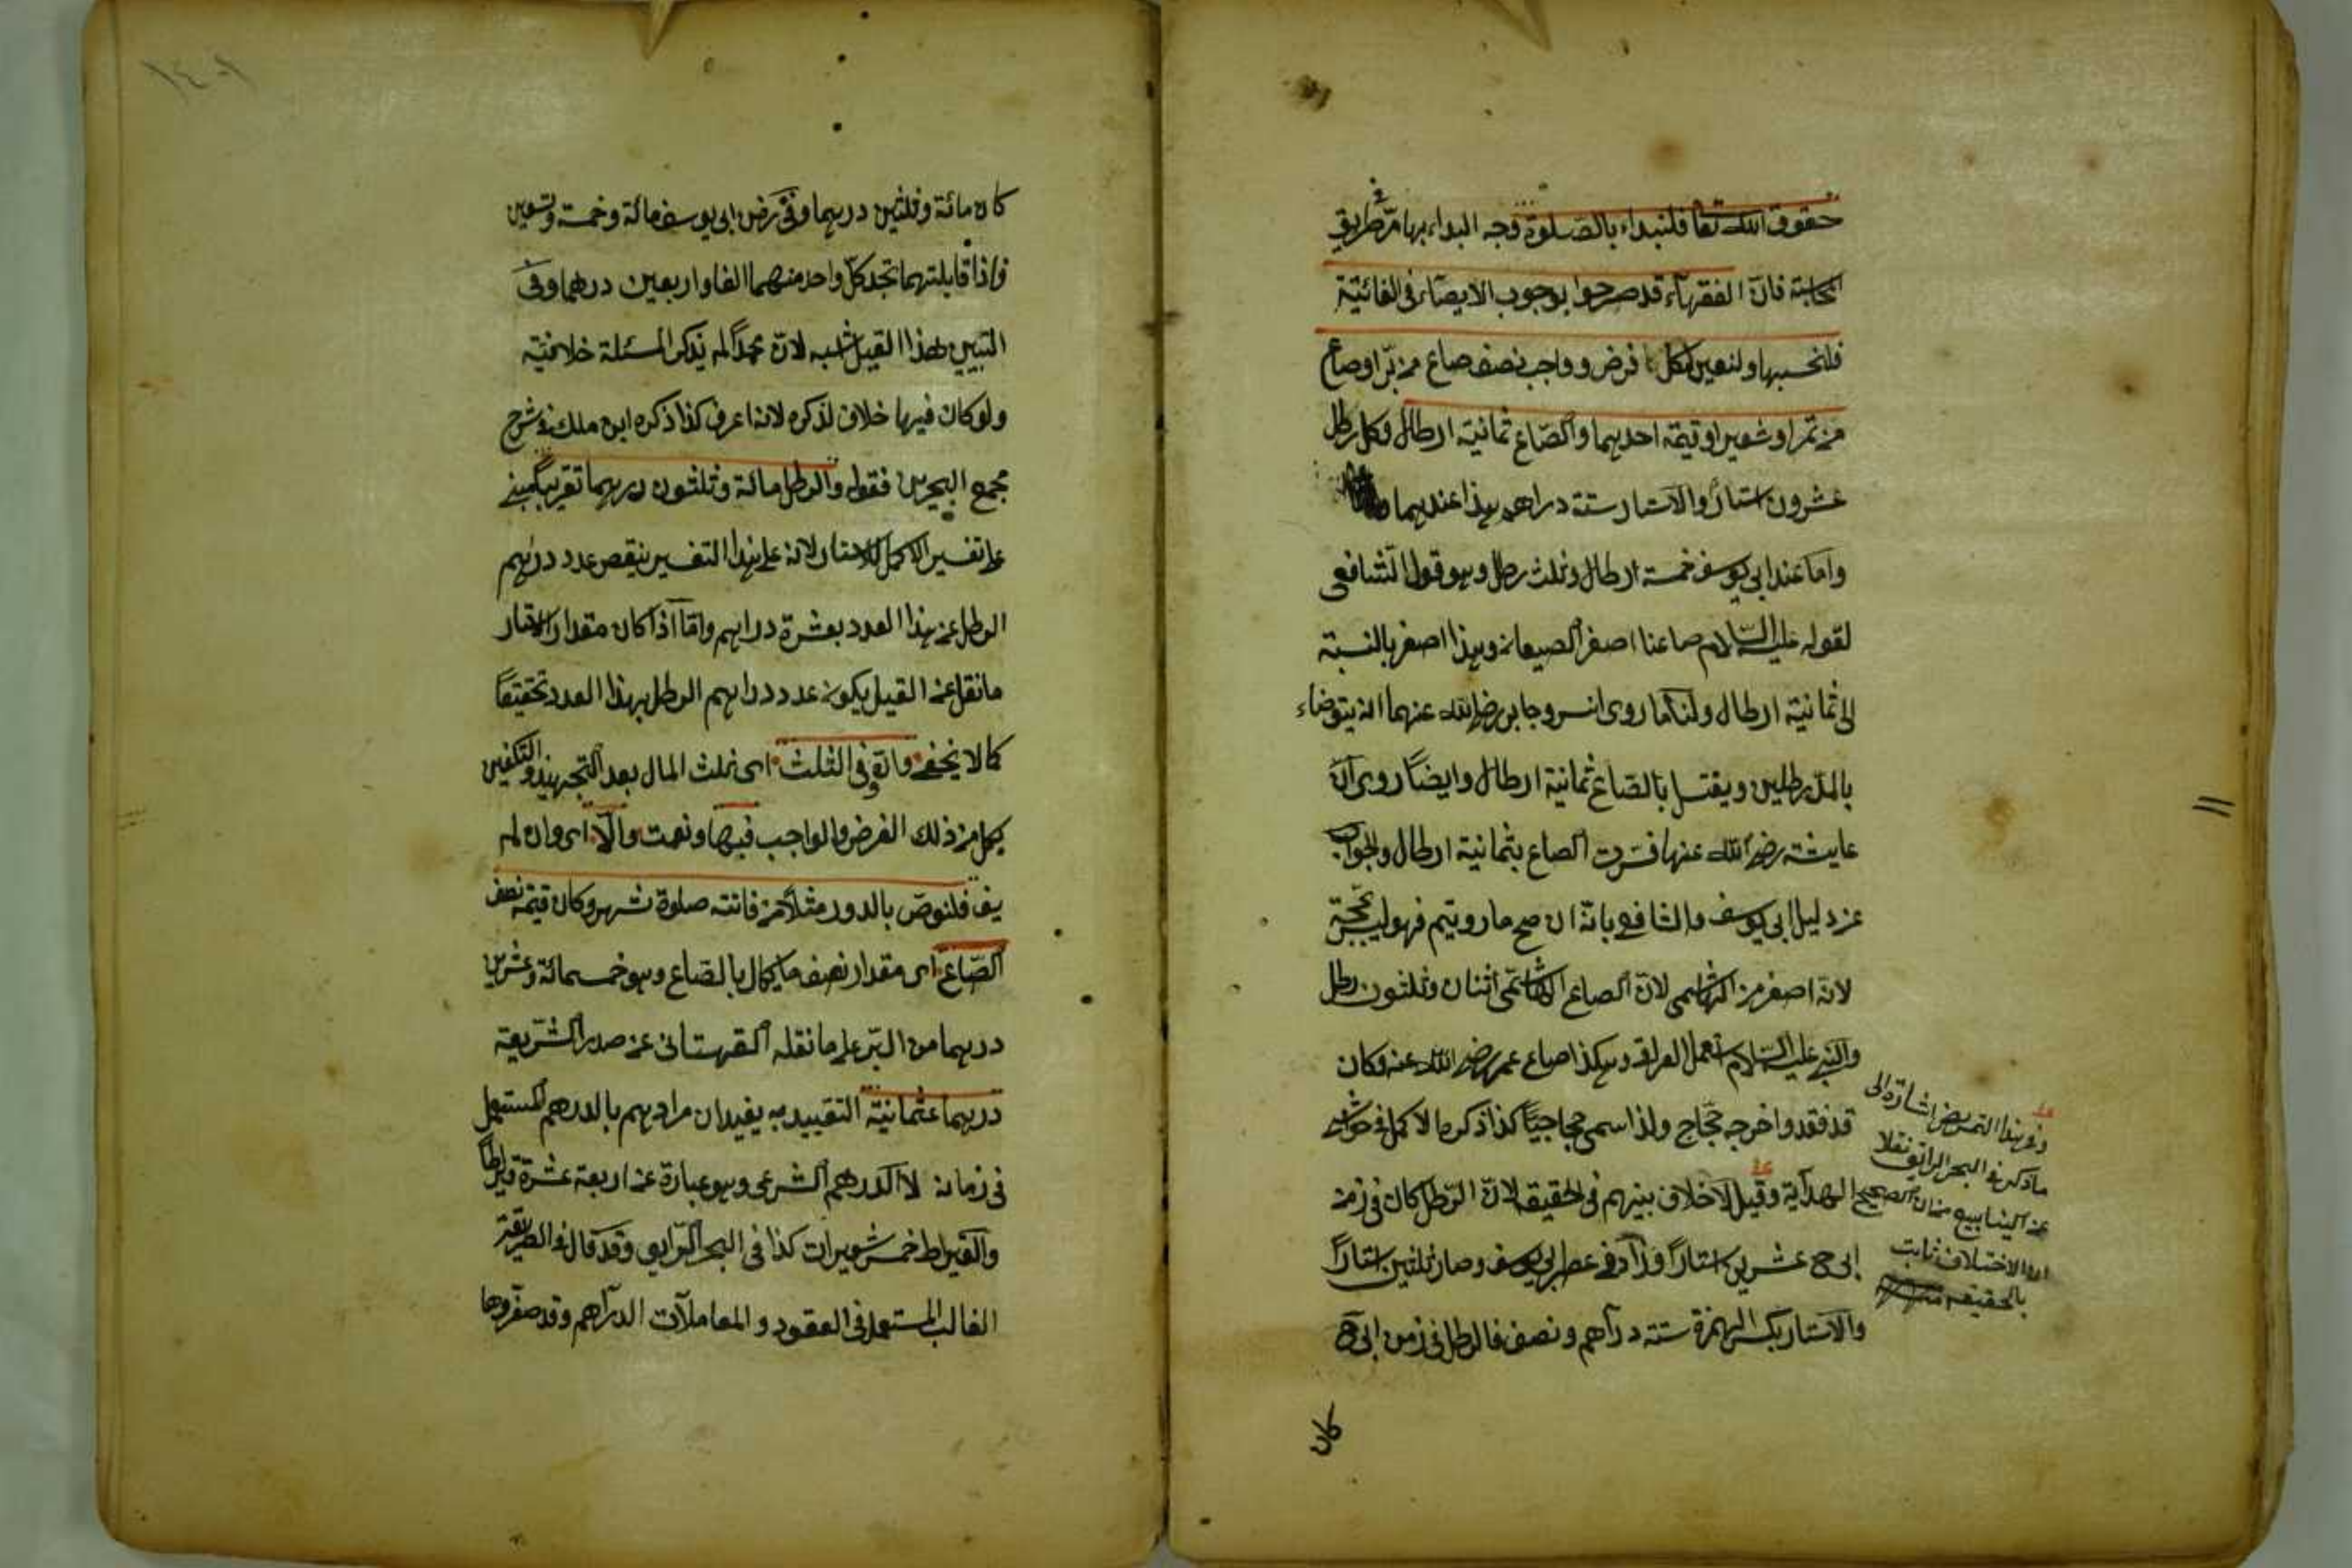 حقوق الله تعا فلنبداء بالصلوة وجه البداء بها مر في طريق
فان الفقهاء قد صرحوا بوجوب الايصاء في الفائتة
فلنحسبها ولنعين لكل فرض وواجب نصف صاع من بر او صاع
من تمر او شعير او قيمة احديهما والصاع ثمانية ارطال وكل رطل
عشرون استار والاستار ستة دراهم هذا عندهما
واما عند ابي يوسف خمسة ارطال وثلث رطل وهو قول الشافعي
لقوله عليه السلام صاعنا اصغر الصيعان وهذا اصغر بالنسبة
الى ثمانية ارطال ولنا ما روى انس وجابر رضي الله عنهما انه يتوضاء
بالمد رطلين ويغتسل بالصاع ثمانية ارطال وايضا روى ان
عايشة رضي الله عنها فسرت الصاع بثمانية ارطال والجواب
عن دليل ابي يوسف والشافعي بانه ان صح ما رويتم فهو ليس بحجة
لانه اصغر من الهاشمي لان الصاع الهاشمي اثنان وثلثون رطل
والنبي عليه السلام استعمل العراقي وهكذا صاع عمر رضي الله عنه وكان
قد فقد واخرجه حجاج ولذا سمى حجاجيا كذا ذكره الاكمل في حواشي
الهداية وقيل لا خلاف بينهم في الحقيقة لان الرطل كان في زمن
ابي ح عشرين استارا وزاد في عصر ابي يوسف وصار ثلثين استارا
والاستار بكسر الهمزة ستة دراهم ونصف فالرطل في زمن ابي ح
وفي هذا التمريض اشارة الى
ما ذكر في البحر الرائق نقلا
عن الينابيع من ان الصحيح
ان الاختلاف ثابت
بالحقيقة
كان
كان مائة وثلثين درهما وفي زمن ابي يوسف مائة وخمسة وتسعين
واذا قابلتهما تجد كل واحد منهما الفا واربعين درهما وفي
التبيين هذا القيل اشبه لان محمدا لم يذكر المسئلة خلافية
ولو كان فيها خلاف لذكره لانه اعرف كذا ذكره ابن ملك في شرح
مجمع البحرين فقوله والرطل مائة وثلثون درهما تقريبا مبني
على تفسير الاكمل للاستار لانه على هذا التفسير ينقص عدد درهم
الرطل عن هذا العدد بعشرة دراهم واما اذا كان مقدار الاستار
ما نقل عن القيل يكون عدد دراهم الرطل بهذا العدد تحقيقا
كما لا يخفى وانه في الثلث اى ثلث المال بعد التجهيز والتكفين
بكل من ذلك الفرض والواجب فبها ونعمت والا اى وان لم
يف فلنوص بالدور مثلا من فاتته صلوة شهر وكان قيمة نصف
الصاع اى مقدار نصف ما يكال بالصاع وهو خمسمائة وعشرين
درهما من البر على ما نقله القهستاني عن صدر الشريعة
درهما عثمانية التقييد به يفيد ان مرادهم بالدرهم المستعمل
في زمانه لا الدرهم الشرعي وهو عبارة عن اربعة عشرة قيراطا
والقيراط خمس شعيرات كذا في البحر الرايق وقد قال في الطريقة
الغالب المستعمل في العقود والمعاملات الدراهم وقد صغروها